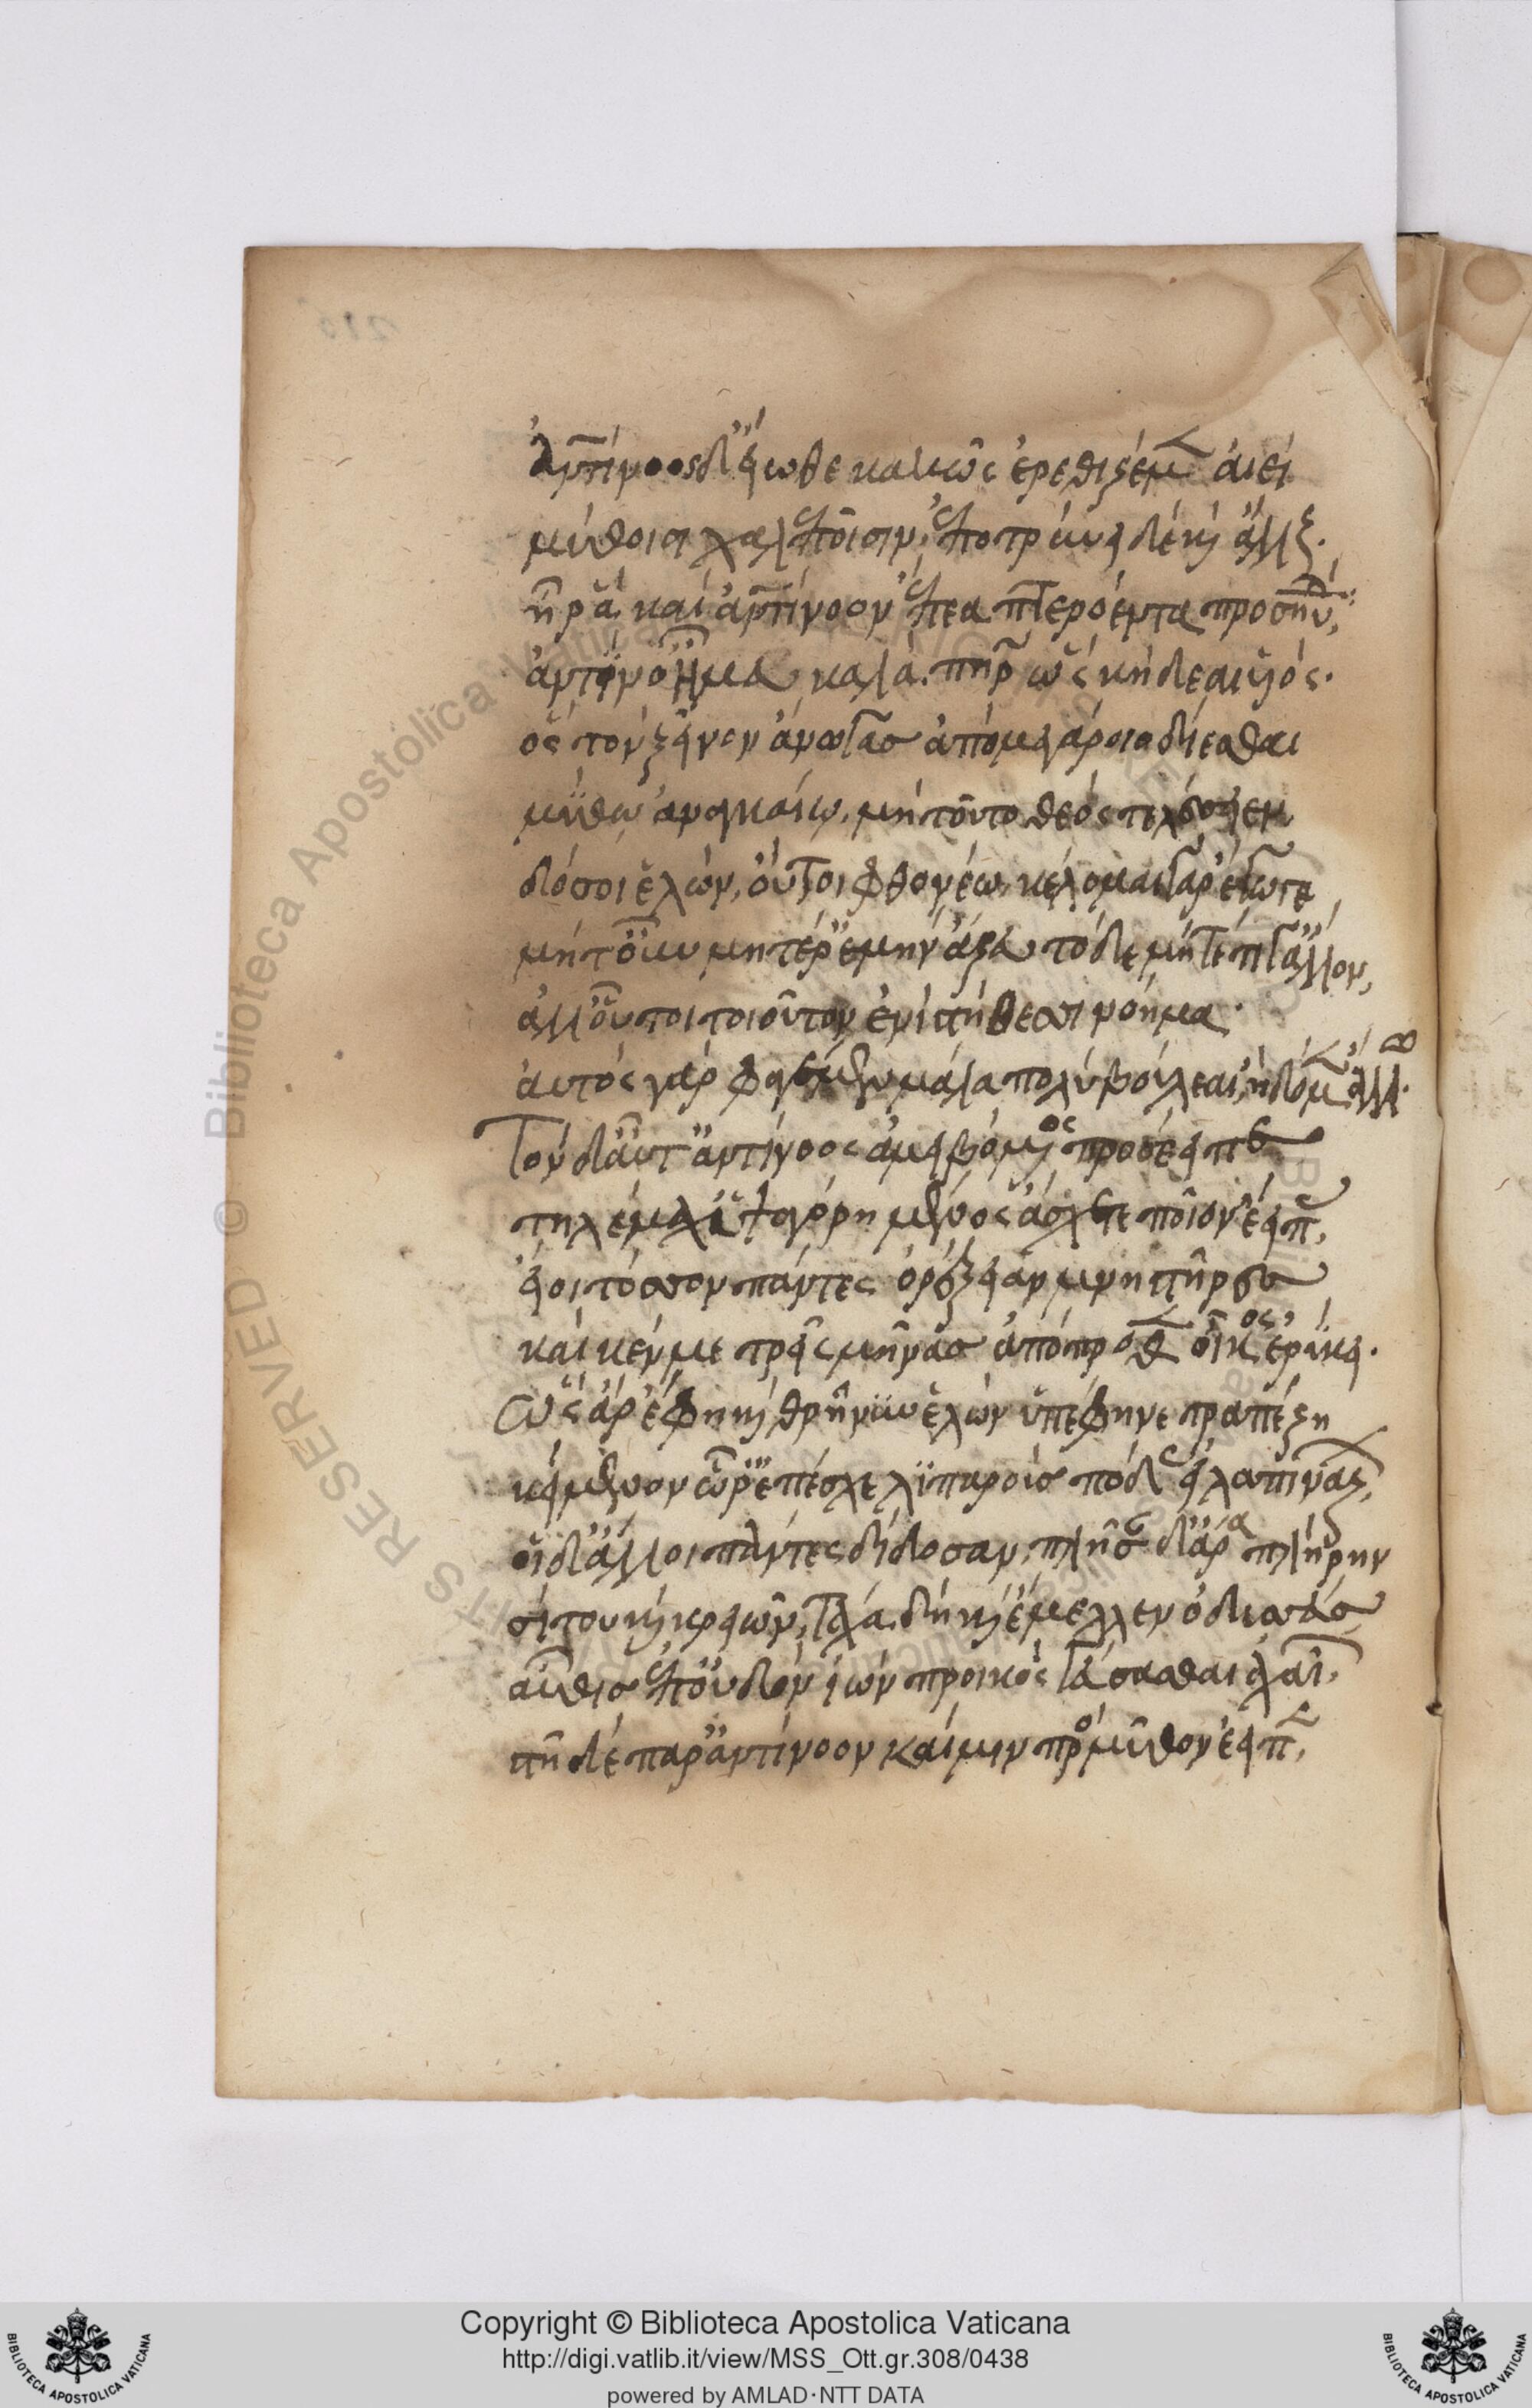 ἀντίνοος δ' εἴωθε κακῶς ἐρεθιζέμεν αἰεὶ
μύθοισι χαλεποῖσιν, ἐποτρύνει δὲ καὶ ἄλλους.
ἦ ῥα καὶ ἀντίνοον ἔπεα πτερόεντα προσηύδα,
ἀντίνο' ἦ μευ καλὰ πατὴρ ὣς κήδεαι υἷος.
ὃς τὸν ξεῖνον ἄνωγας ἀπὸ μεγάροιο δίεσθαι
μύθω ἀναγκαίω, μὴ τοῦτο θεὸς τελέσειεν
δός οἱ ἑλών, οὔτοι φθονέω, κέλομαι γὰρ ἔγωγε
μήτ' οὖν μητέρ' ἐμὴν ἅζευ τόδε μήτέ τιν' ἄλλον,
ἀλλ' οὔ τοι τοιοῦτον ἐνὶ στήθεσσι νόημα.
αὐτὸς γὰρ φαγέμεν πολὺ βούλεαι, ἢ δόμεν ἄλλω.
Τὸν δ' αὖτ' ἀντίνοος ἀμειβόμενος προσέειπε
τηλέμαχ' ὑψαγόρη μένος ἄσχετε ποῖον ἔειπες,
εἴ οἱ τόσσον πάντες ὀρέξειαν μνηστῆρες
καί κέν μιν τρεῖς μῆνας ἀπόπροθεν οἶκος ἐρύκει.
Ὣς ἄρ' ἔφη καὶ θρῆνυν ἑλὼν ὑπέφηνε τραπέζη
κείμενον ὧ ῥ' ἔπεσχε λιπαροὺς πόδας εἰλαπινάζων,
οἱ δ' ἄλλοι πάντες δίδοσαν, πλῆσαν δ' ἄρα πήρην
σίτου καὶ κρειῶν, τάχα δὴ καὶ ἔμελλεν ὀδυσσεὺς
αὖθις ἐπ' οὐδὸν ἰὼν προικὸς γεύσασθαι ἀχαιῶν,
στῆ δὲ παρ' ἀντίνοον καί μιν πρὸς μῦθον ἔειπε,
Copyright © Biblioteca Apostolica Vaticana
http://digi.vatlib.it/view/MSS_Ott.gr.308/0438
powered by AMLAD·NTT DATA